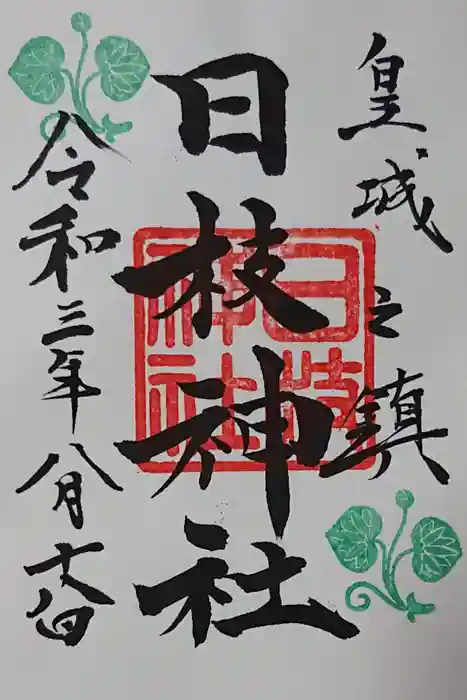 皇城之鎮
日枝神社
令和三年八月
日枝
神社